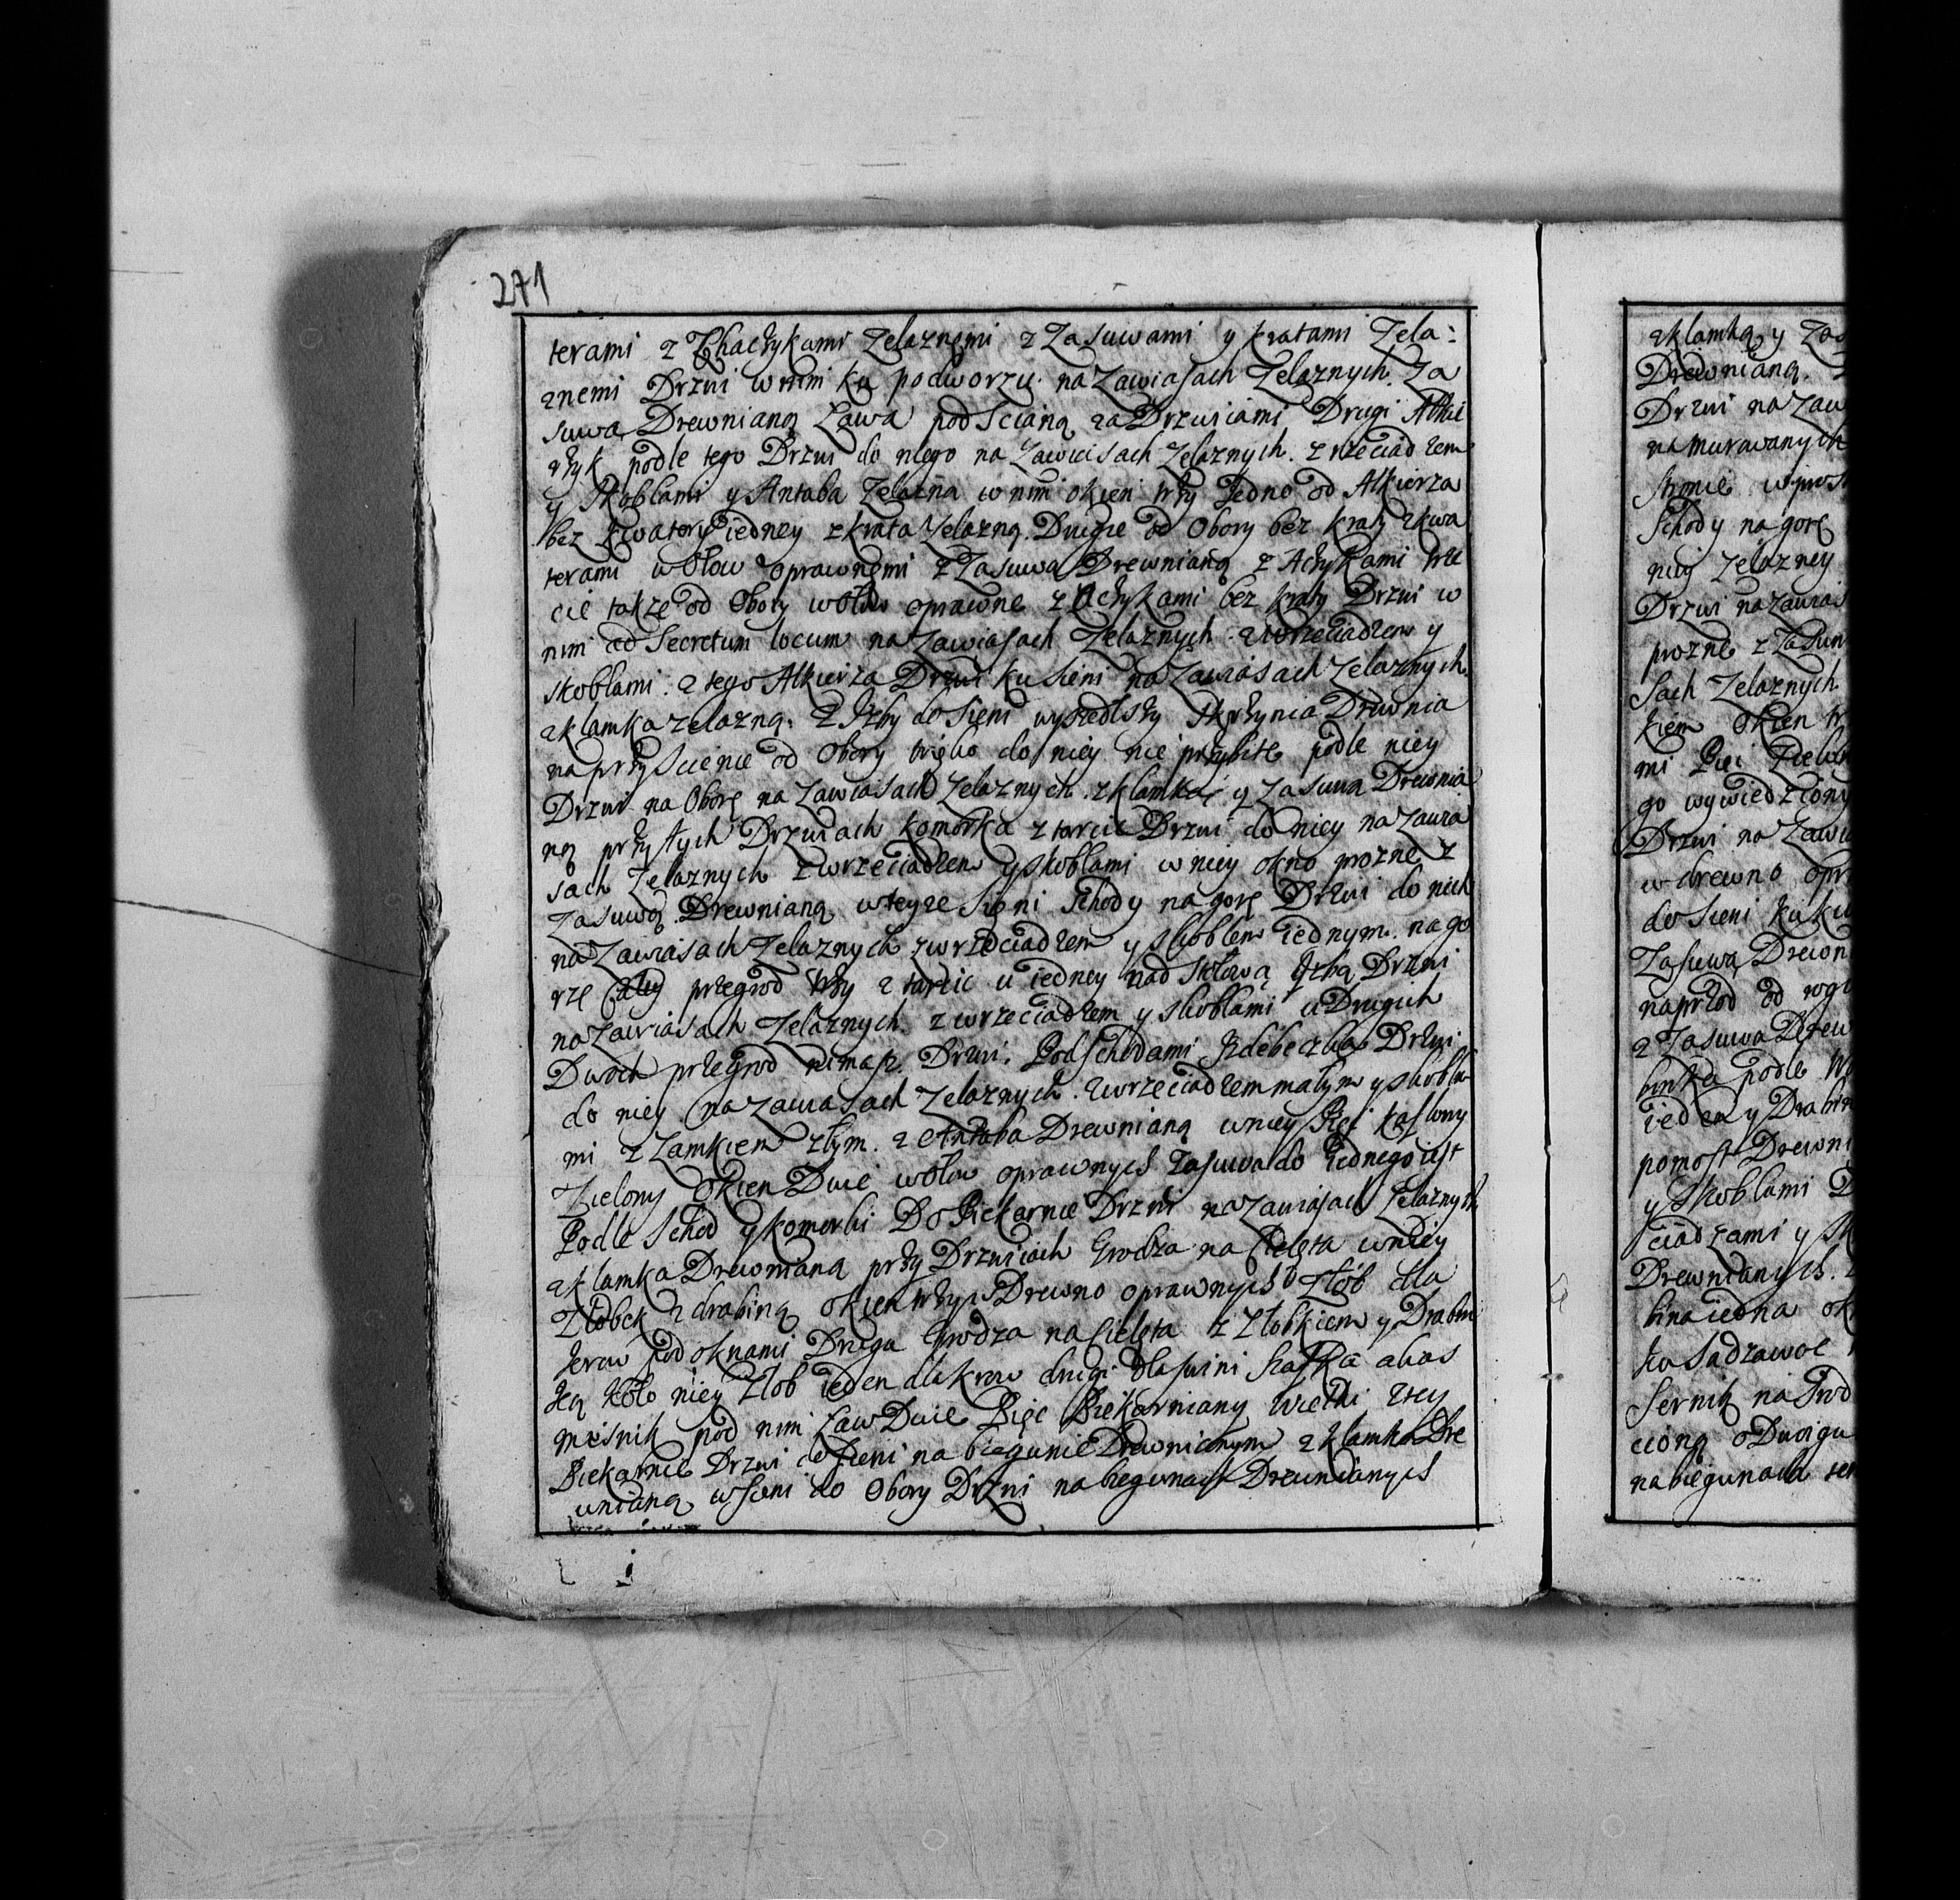 271
terami z Zhaczykami Zelaznemi z Zasuwami y kratami Zela:
znemi Drzwi w nim ku podworzu na Zawiasach Zelaznych. Za
suwa Drewnianą Ława pod Scianą za Drzwiami Drugi Alkie
rzyk podle tego Drzwi do niego na Zawiasach Zelaznych. z rzeciądzem
y Skoblami y Antaba Zelazna w nim okien trzy Jedno od Alkierza
bez kwatery iedney z krata Zelazną. Drugie od Obory bez kraty z kwa
terami w Ołow oprawnemi z Zasuwa Drewnianą z Aczykami trze
cie także od Obory w ołow oprawne z Aczykami bez kraty Drzwi w
nim ad Secretum locum na Zawiasach Zelaznych z wrzeciądzem y
skoblami: z tego Alkierza Drzwi ku Sieni na Zawiasach Zelaznych
z klamka zelazną: Z Izby do Sieni wyszedłszy Skrzynia Drewnia
na przy Scienie od Obory wieko do niey nie przybite podle niey
Drzwi na Oborę na Zawiasach Zelaznych z klamką y Zasuwa Drewnia
ną przy tych Drzwiach komorka z tarcic Drzwi do niey na Zawia
sach Zelaznych z wrzeciądzem y skoblami w niey okno prozne z
Zasuwą Drewnianą w teyze Sieni Schody na gorę Drzwi do nich
na Zawiasach Zelaznych z wrzeciądzem y skoblem iednym. na go
rze przegrod trzy z tarcic u iedney nad Stołową Izbą Drzwi
na Zawiasach Zelaznych z wrzeciądzem y skoblami u Drugich
Dwoch przegrod nimasz Drzwi. Pod Schodami Izdebeczka Drzwi
do niey na Zawiasach Zelaznych. z wrzeciądzem małym y skobla
mi z Zamkiem złym. z Antaba Drewnianą w niey Piec kaflowy
Zielony Okien Dwie w ołow oprawnych Zasuwa do Jednego iest
Podle Schod y komorki Do Piekarnie Drzwi na Zawiasach Zelaznych
z klamka Drewnianą przy Drzwiach Grodza na Cielęta w niey
Złobek z drabiną okien trzy w Drewno oprawnych Złob dla
krow pod oknami Druga Grodza na Cielęta z Złobkiem y Drabin
ką koło niey Złob ieden dla krow drugi dla swini Szafka alias
miśnik pod nim Ław Dwie Piec Piekarniany Wielki z tey
Piekarnie Drzwi do Sieni na biegunie Drewnianym z klamka Dre
wnianą w Sieni do Obory Drzwi na biegunach Drewnianych
z klamką y Zas
Drewnianą.
Drzwi na Zaw
na murowanych
stronie wprost
Schody na gorę
niey Zelazney
Drzwi na zawias
prozne z Zasuw
Sach Zelaznych
kiem Okien tr
mi Piec Zielon
go wywiedziony
Drzwi na Zawia
w drewno opr
do Sieni ku ku
Zasuwą Drewn
naprzod od
z Zasuwa Drew
podle
ieden y Drabin
pomost Drewni
y Skoblami D
ciądzami y Sk
Drewnianych.
bina iedna ok
Sadzawce
Sernik na Grod
cioną o Dwoigu
na biegunach